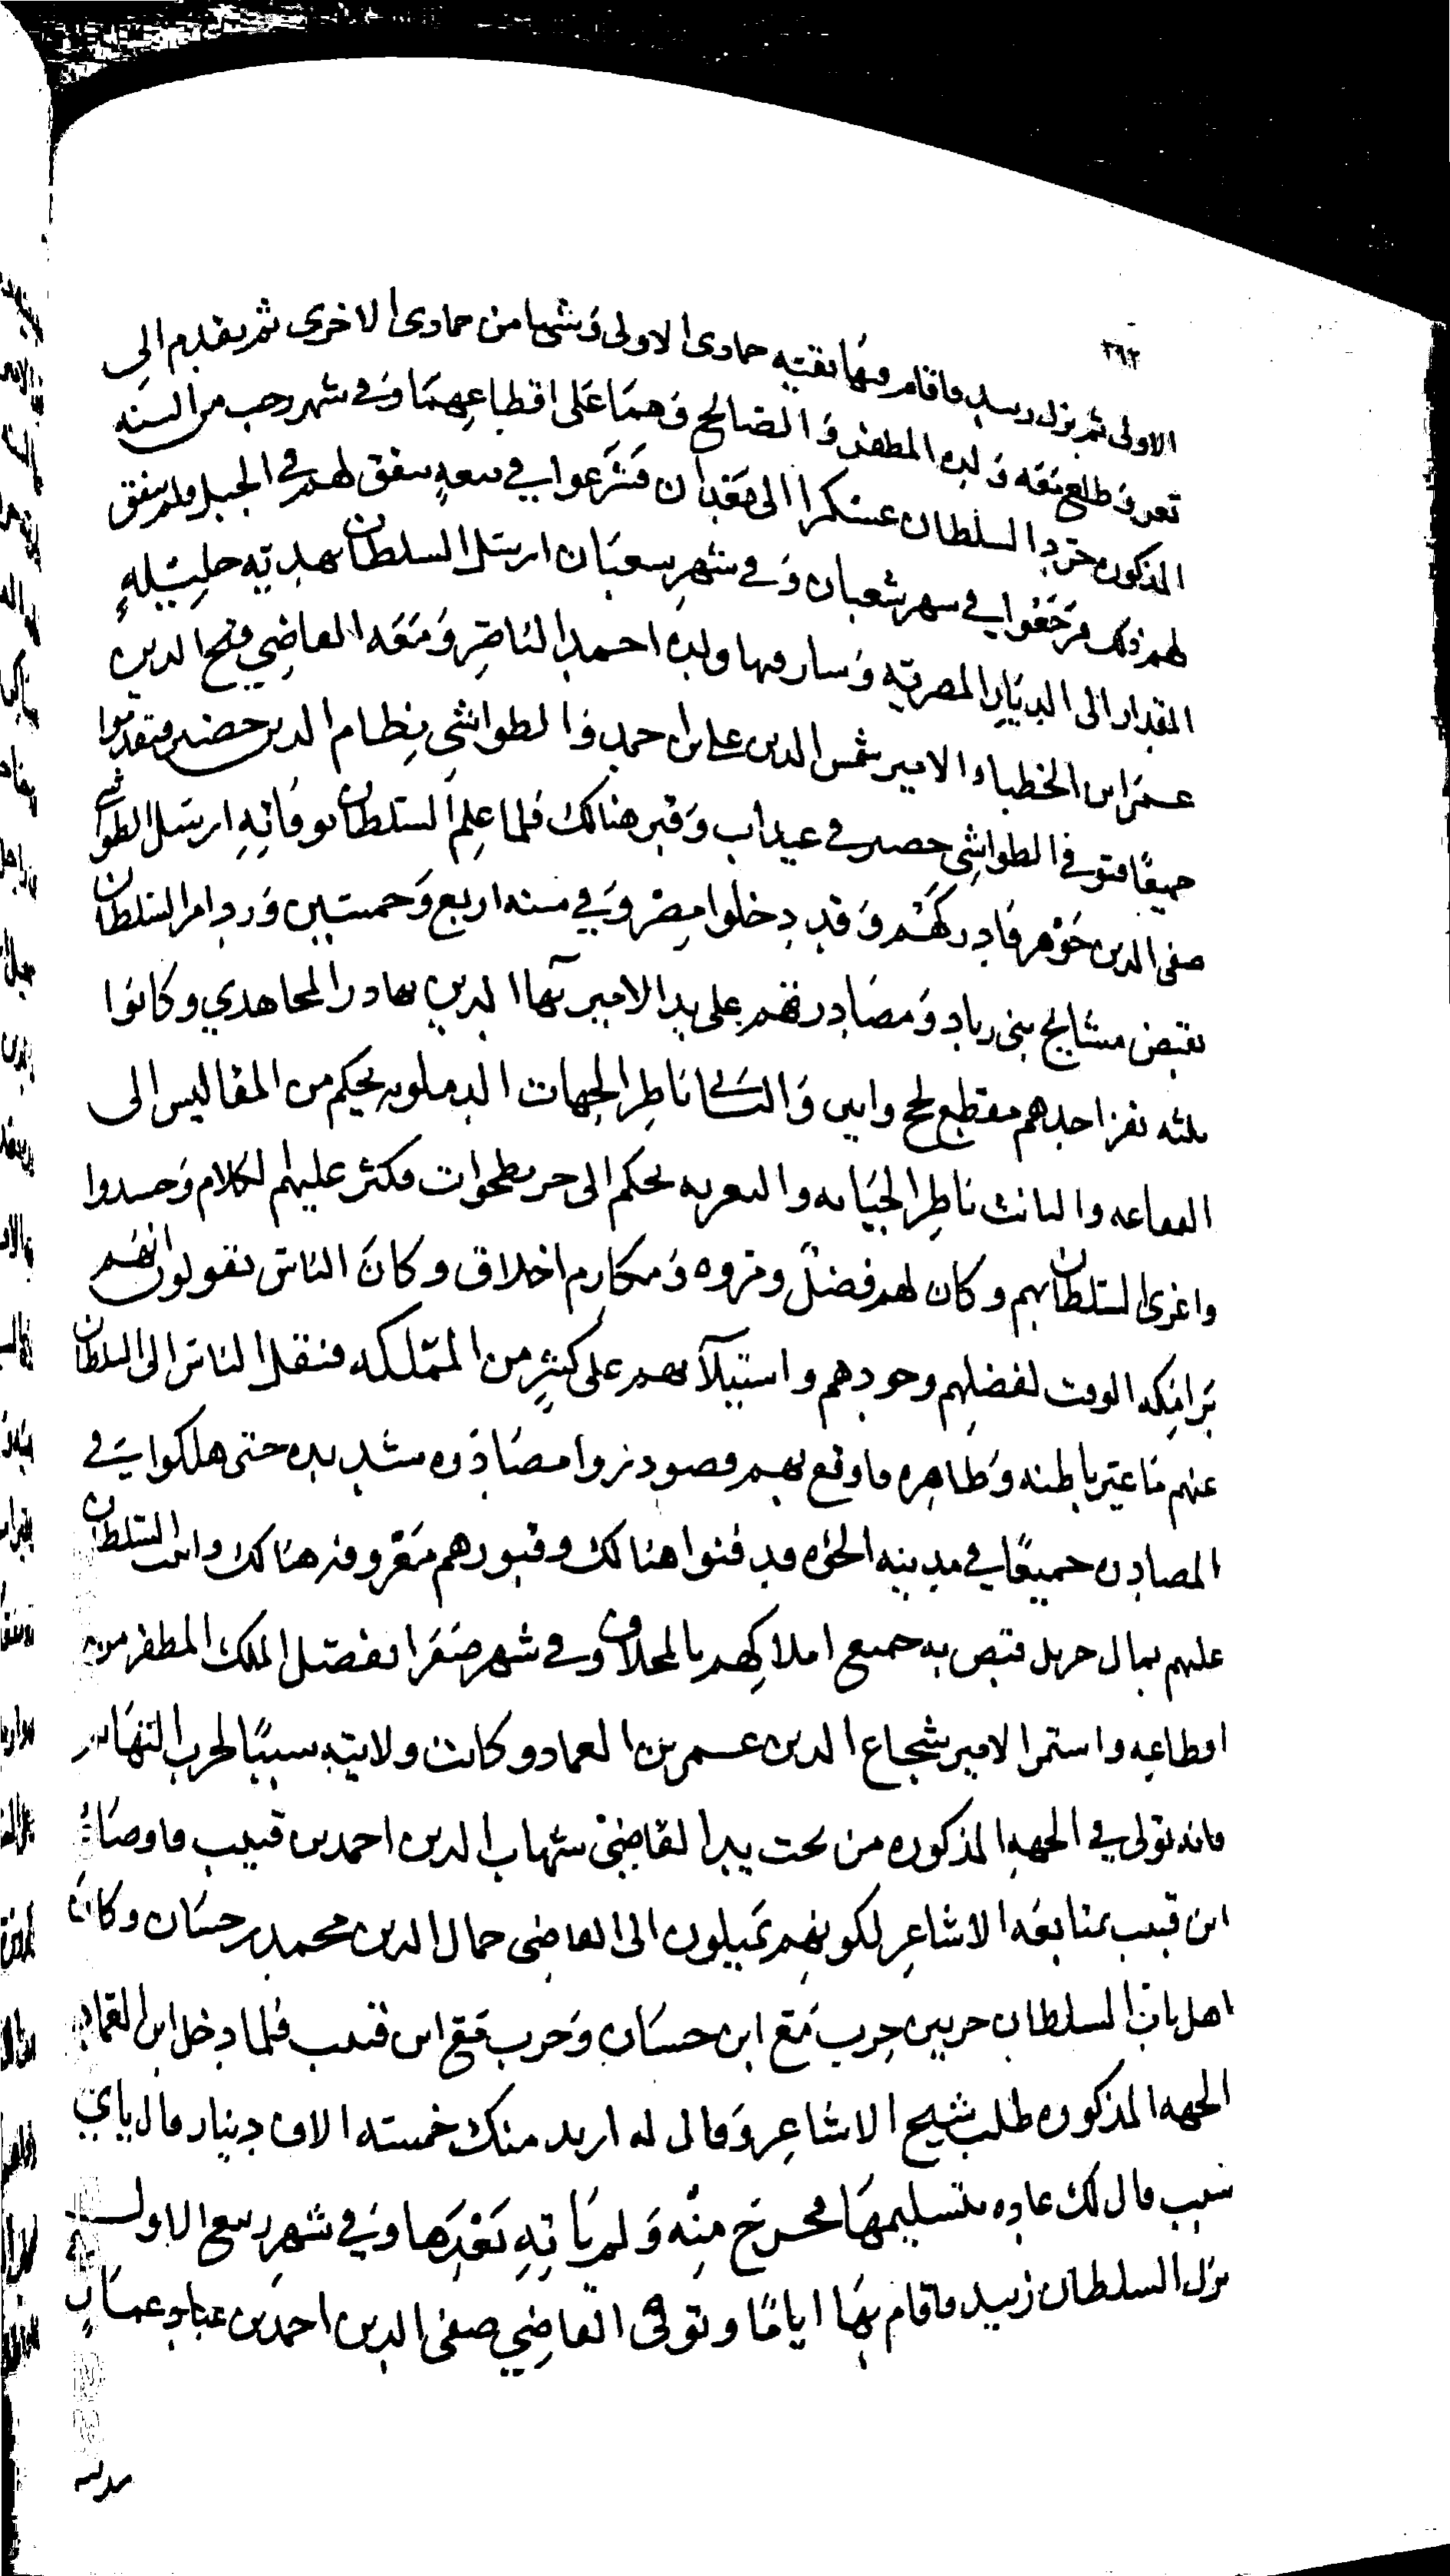 ٣٩٢
الاولى ثم نزل زبيد فاقام فيها بقيه جمادى الاولى وشيا من جمادى الاخرى ثم تقدم الى
تعز وطلع معه ولده المظفر والصالح وهما على اقطاعهما وفي شهر رجب من السنه
المذكوره جرد السلطان عسكرا الى بعدان فشرعوا في بيعه سفق لهم في الجبل ولم يتفق
لهم ذلك فرجعوا في شهر شعبان وفي شهر شعبان ارسل السلطان بهديه جليله
المقدار الى الديار المصريه وسار فيها ولده احمد الناصر ومعه القاضي فتح الدين
عمر ابن الخطباء والامير شمس الدين علي بن احمد والطواشي نظام الدين حضير فتقدموا
جميعا فتوفي الطواشي حضير في عيذاب وقبر هنالك فلما علم السلطان بوفاته ارسل الطواشي
صفي الدين جوهر فادركهم وقد دخلوا مصر وفي سنه اربع وخمسين ورد امر السلطان
بقبض مشايخ بني زياد ومصادرتهم على يد الامير بهاا الدين بهادر المجاهدي وكانوا
ثلثه نفر احدهم مقطع لحج وابين والثاني ناظر الجهات الدملويه يحكم من المفاليس الى
الفقاعه والثالث ناظر الجثاثه والتعزيه يحكم الى حد مطحوات فكثر عليهم الكلام وحسدوا
واغرى السلطان بهم وكان لهم فضل ومروه ومكارم اخلاق وكان الناس يقولون انهم
برامكه الوقت لفضلهم وجودهم واستيلآئهم على كثير من المملكه فنقل الناس الى السلطان
عنهم ما غير باطنه وظاهره فاوقع بهم فصودروا مصادره شديده حتى هلكوا في
المصادره جميعا في مدينه الجوه فدفنوا هنالك وقبورهم معروفه هنالك واثبت السلطان
عليهم بمال جزيل فقبض به جميع املاكهم بالمخلاف وفي شهر صفر انفصل الملك المظفر من
اقطاعه واستمر الامير شجاع الدين عمر بن العماد وكانت ولايته سببا لحرب التهايم
فانه تولى في الجهه المذكوره من تحت يد القاضي شهاب الدين احمد بن قبيب فاوصاه
ابن قبيب بمتابعه الاشاعر لكونهم يميلون الى القاضي جمال الدين محمد بن حسان وكان
اهل باب السلطان حربين حرب مع ابن حسان وحرب مع ابن قبيب فلما دخل ابن العماد
الجهه المذكوره طلب شيخ الاشاعر وقال له اريد منك خمسه الاف دينار قال باي
سبب قال لك عاده بتسليمها فخرج منه ولم ياته بعدها وفي شهر ربيع الاول
نزل السلطان زبيد فاقام بها اياما وتوفى القاضي صفي الدين احمد بن عباد عمار